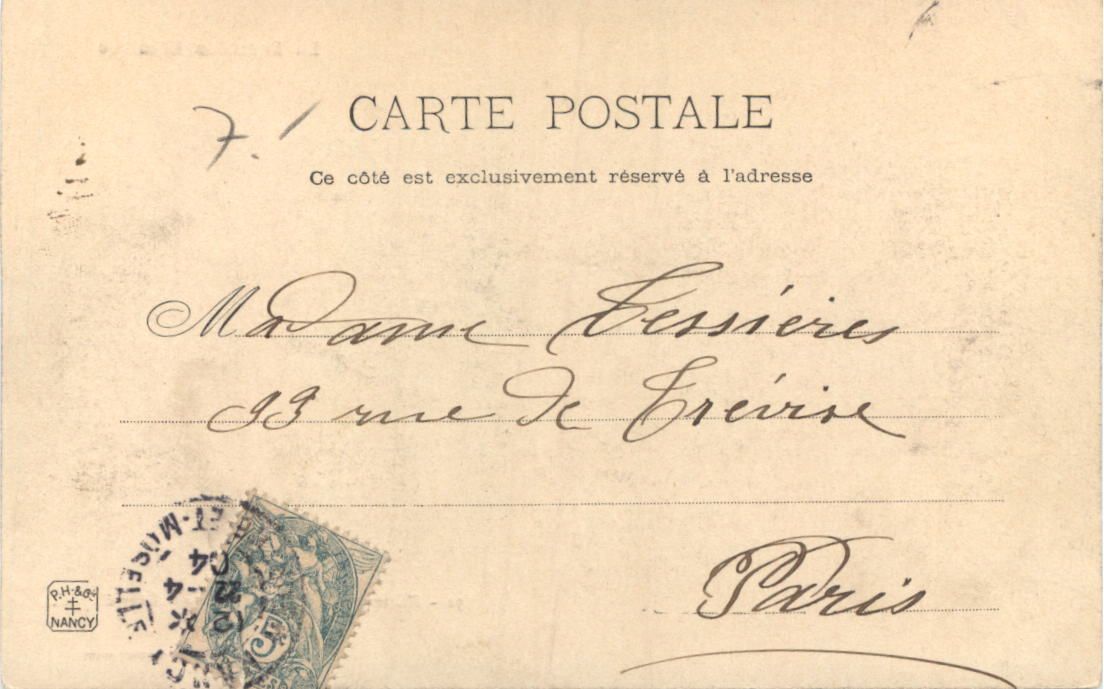 7.
CARTE POSTALE
Ce côté est exclusivement réservé à l'adresse
Madame Tessières
93 rue de Trévise
Paris
P.H.&G.
NANCY
ET-MOSELLE
4
04
5c